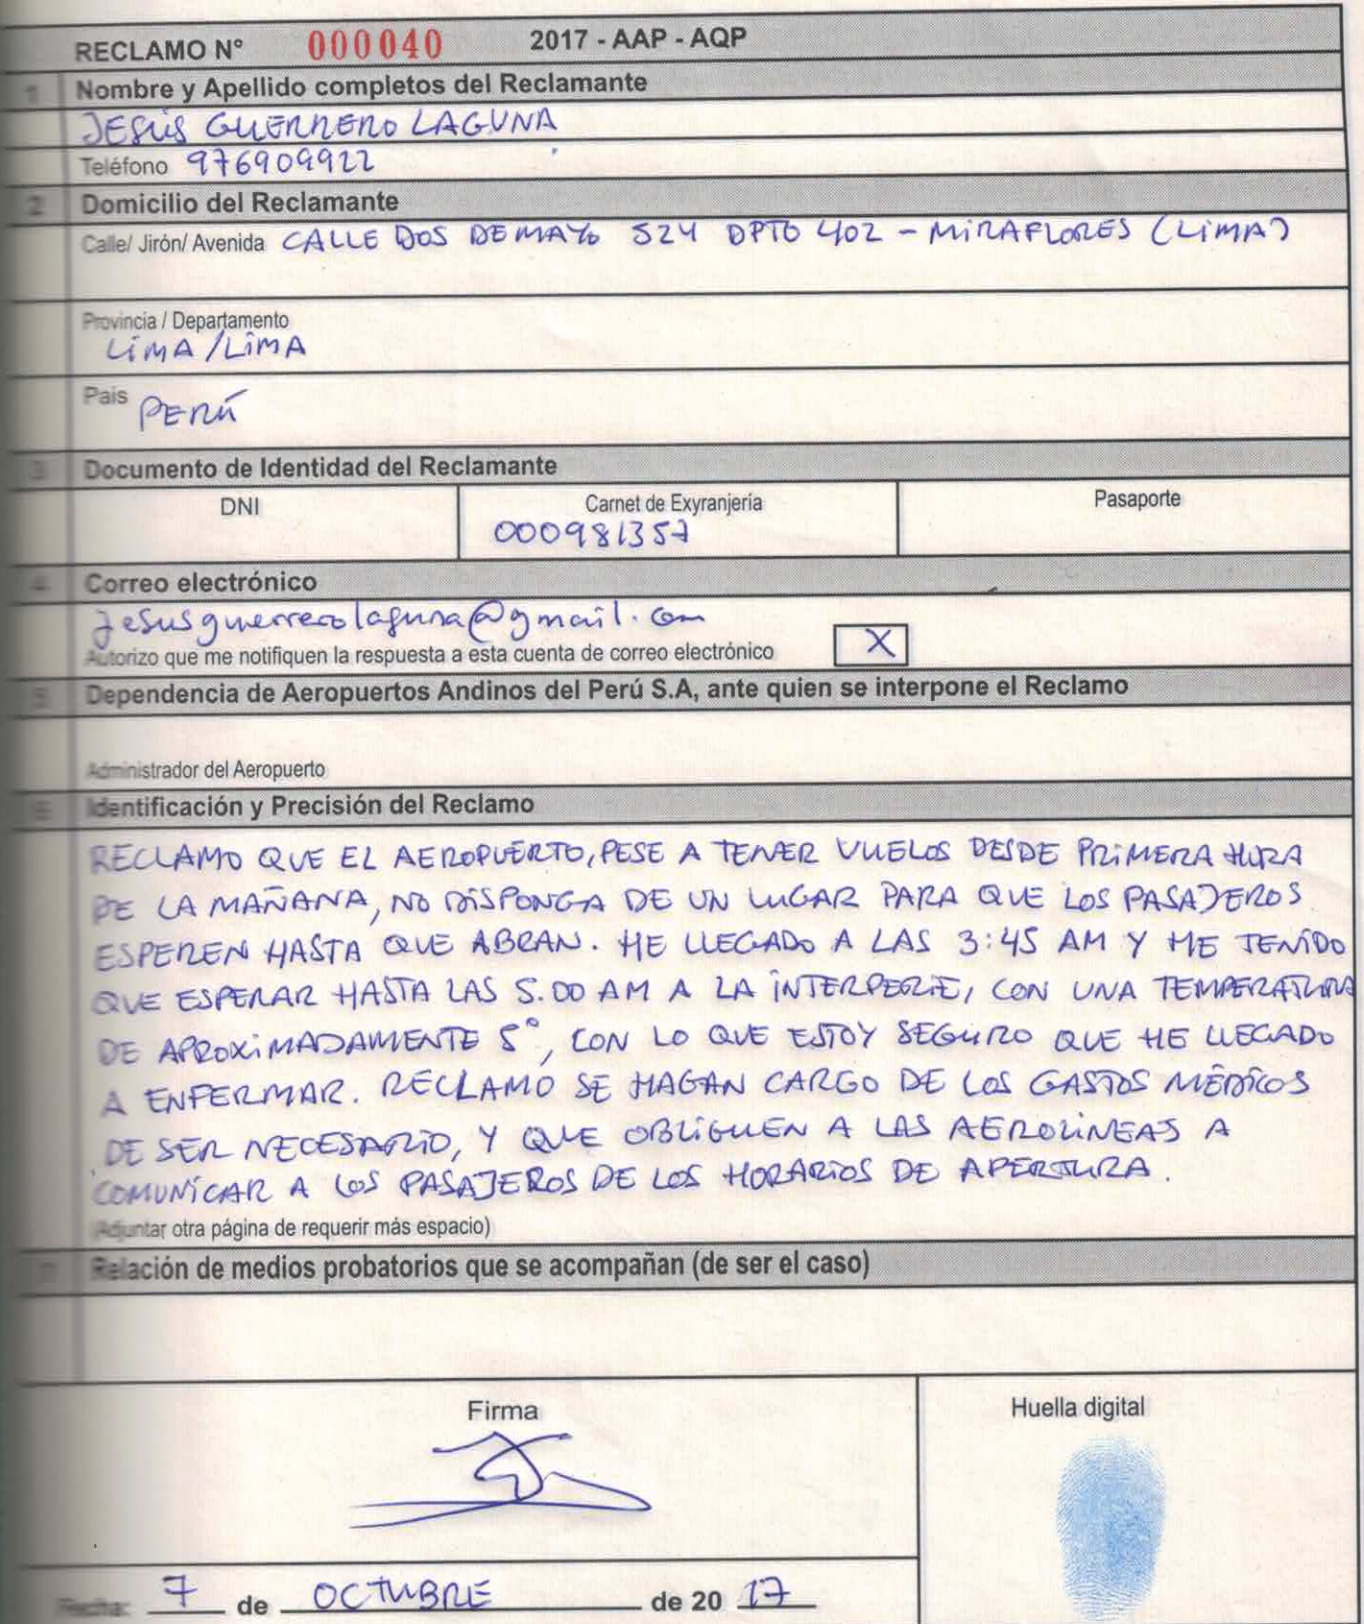 RECLAMO N° 000040 2017 - AAP - AQP
1 Nombre y Apellido completos del Reclamante
JESÚS GUERRERO LAGUNA
Teléfono 976909922
2 Domicilio del Reclamante
Calle/ Jirón/ Avenida CALLE DOS DE MAYO 524 DPTO 402 - MIRAFLORES (LIMA)
Provincia / Departamento
LIMA / LIMA
Pais PERÚ
3 Documento de Identidad del Reclamante
DNI Carnet de Exyranjería Pasaporte
000981357
4 Correo electrónico
jesusguerrerolaguna@gmail.com
Autorizo que me notifiquen la respuesta a esta cuenta de correo electrónico X
5 Dependencia de Aeropuertos Andinos del Perú S.A, ante quien se interpone el Reclamo
Administrador del Aeropuerto
6 Identificación y Precisión del Reclamo
RECLAMO QUE EL AEROPUERTO, PESE A TENER VUELOS DESDE PRIMERA HORA
DE LA MAÑANA, NO DISPONGA DE UN LUGAR PARA QUE LOS PASAJEROS
ESPEREN HASTA QUE ABRAN. HE LLEGADO A LAS 3:45 AM Y HE TENIDO
QUE ESPERAR HASTA LAS 5.00 AM A LA INTERPERIE, CON UNA TEMPERATURA
DE APROXIMADAMENTE 5°, CON LO QUE ESTOY SEGURO QUE HE LLEGADO
A ENFERMAR. RECLAMO SE HAGAN CARGO DE LOS GASTOS MÉDICOS
DE SER NECESARIO, Y QUE OBLIGUEN A LAS AEROLINEAS A
COMUNICAR A LOS PASAJEROS DE LOS HORARIOS DE APERTURA.
(Adjuntar otra página de requerir más espacio)
7 Relación de medios probatorios que se acompañan (de ser el caso)
Firma Huella digital
Fecha: 7 de OCTUBRE de 2017